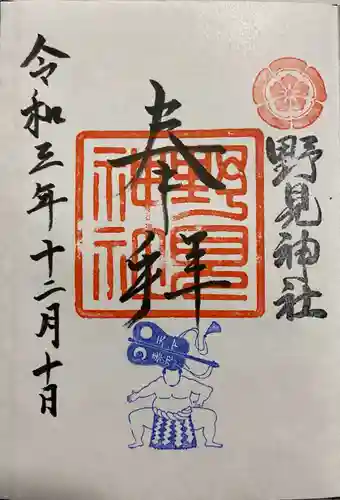 野見神社
奉拝
野見
神社
令和三年十二月十日